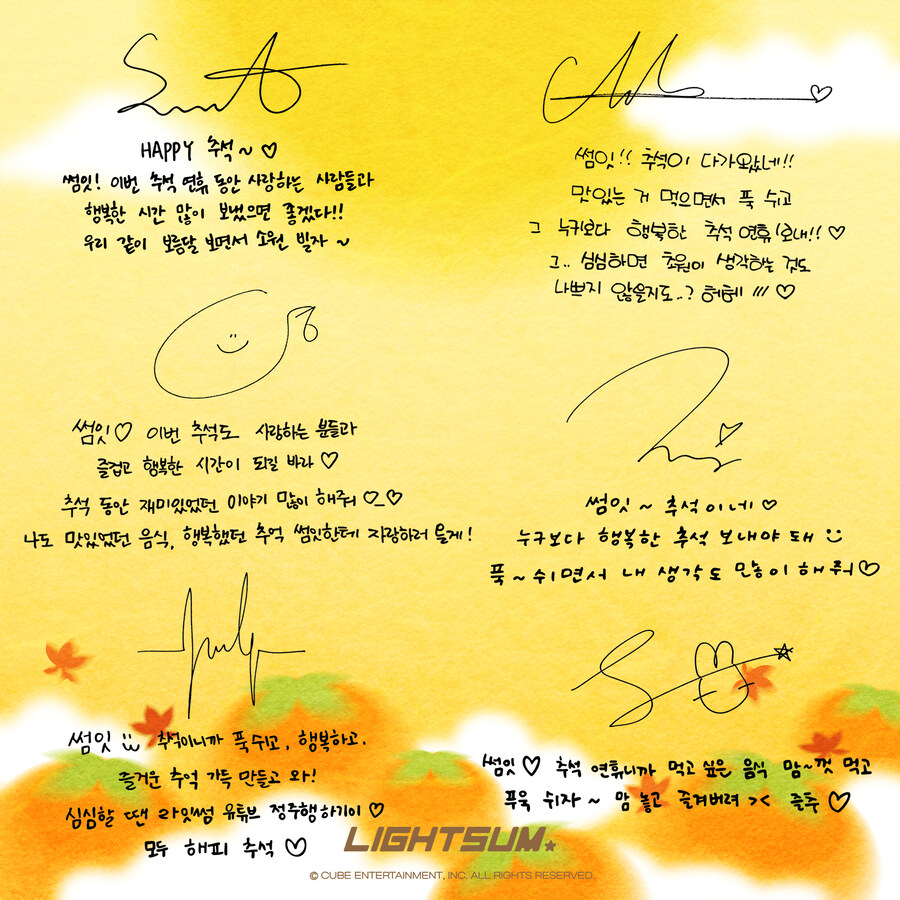 HAPPY 추석 ~ ♡
썸잇! 이번 추석 연휴 동안 사랑하는 사람들과
행복한 시간 많이 보냈으면 좋겠다!!
우리 같이 보름달 보면서 소원 빌자 ~
썸잇!! 추석이 다가왔네!!
맛있는 거 먹으면서 푹 쉬고
그 누구보다 행복한 추석 연휴 보내!! ♡
그.. 심심하면 초원이 생각하는 것도
나쁘지 않을지도..? 허헤 /// ♡
썸잇♡ 이번 추석도 사랑하는 분들과
즐겁고 행복한 시간이 되길 바라 ♡
추석 동안 재미있었던 이야기 많이 해줘 ♡_♡
나도 맛있었던 음식, 행복했던 추억 썸잇한테 자랑하러 올게!
썸잇 ~ 추석이네 ♡
누구보다 행복한 추석 보내야 돼
푹 ~ 쉬면서 내 생각도 많이 해줘♡
썸잇 추석이니까 푹 쉬고, 행복하고.
즐거운 추억 가득 만들고 와!
심심할 땐 라잇썸 유튜브 정주행하기이 ♡
모두 해피 추석 ♡
썸잇 ♡ 추석 연휴니까 먹고 싶은 음식 맘~껏 먹고
푸욱 쉬자 ~ 맘 놓고 즐겨버려 >< 쥴쥬 ♡
LIGHTSUM
© CUBE ENTERTAINMENT, INC. ALL RIGHTS RESERVED.